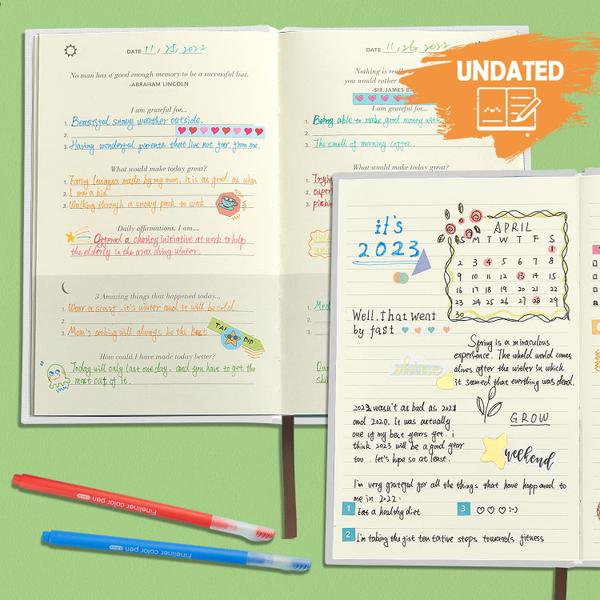 DATE 11, 25, 2022
No man has a good enough memory to be a successful liar,
-ABRAHAM LINCOLN
I am grateful for...
1. Beautiful snowy weather outside.
2.
3. Having wonderful parents that live not far from me.
What would make today great?
1. made by my mom, it is as good as when
2. I was a kid
3. Walking through a snowy park to work
Daily affirmations. I am...
Offered a charity initiative at work to help
the elderly in the area during winter.
3 Amazing things that happened today...
1. Wear a scarf, it's winter and it will be cold
2.
3. Mom's cooking will always be the best
How could I have made today better?
Today will only last one day, and you have to get the
most out of it.
DATE 11, 26, 2022
Nothing is
you would rather
-SIR.JAMES
I am grateful for...
1. Being able to make good money
2.
3. The smell of morning coffee.
What would make
1.
2.
3.
Daily
3
1.
2.
3.
How could
UNDATED
it's
2023
APRIL
M T W T F S
1
2 3 4 5 6 7 8
9 10 11 12 13 14 15
16 17 18 19 20 21 22
23 24 25 26 27 28 29
30
Well. that went
by fast
Spring is a miraculous
experience. The whole world comes
alive after the winter in which
it seemed that everthing was dead.
GROW
2022 wasn't as bad as 2021
and 2020. It was actually
one of my best years yet. i
think 2023 will be a good year
too. let's hope so at least.
weekend
I'm very grateful for all the things that have happened to
me in 2022.
1 Eat a healthy diet
3
2 I'm taking the fist tentative steps towards fitness
Fineliner color pen
Fineliner color pen